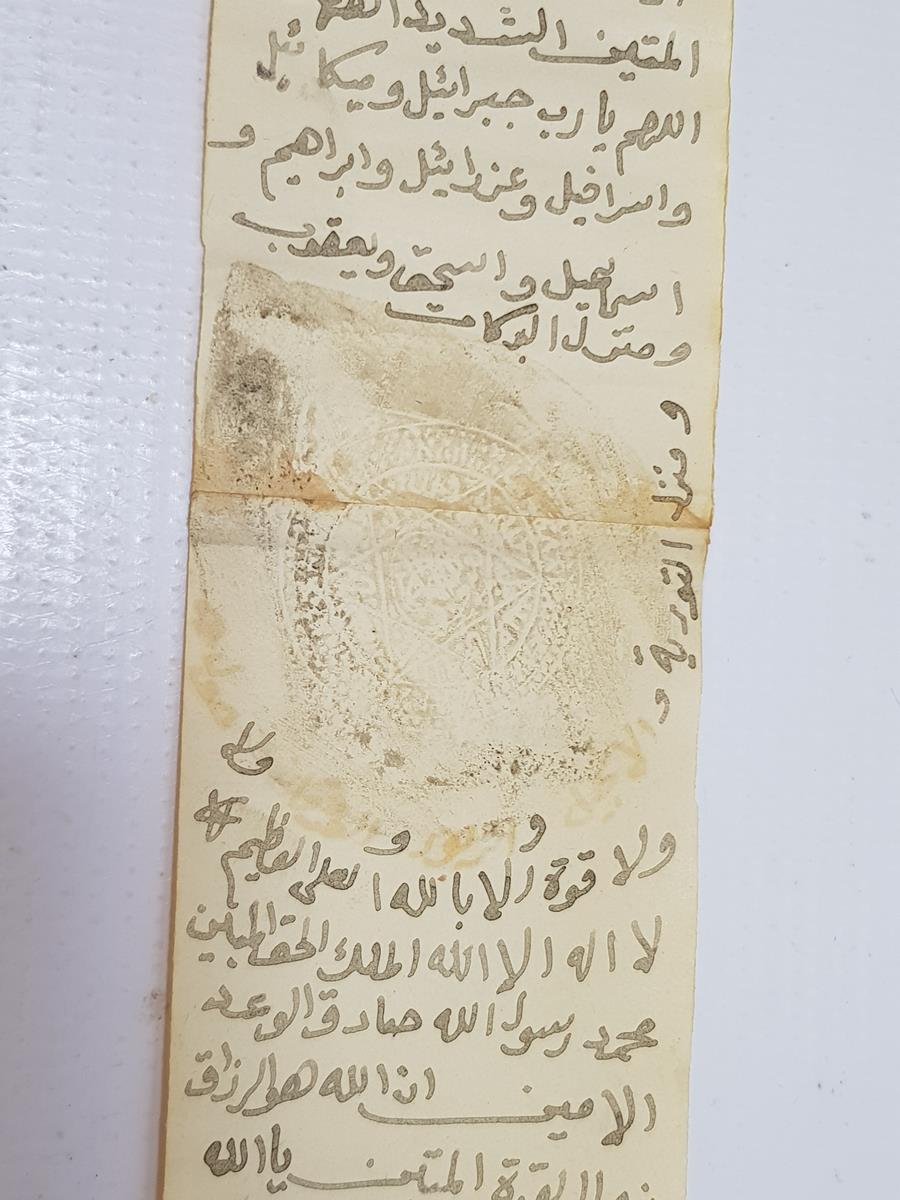 المتين الشديد
اللهم يا رب جبرائيل وميكائيل
واسرافيل وعزرائيل وابراهيم و
اسماعيل واسحق ويعقوب
ومنزل البركات
ومنزل التورية و
ولا قوة الا بالله العلي العظيم
لا اله الا الله الملك الحق المبين
محمد رسول الله صادق الوعد
الامين ان الله هو الرزاق
ذو القوة المتين يا الله